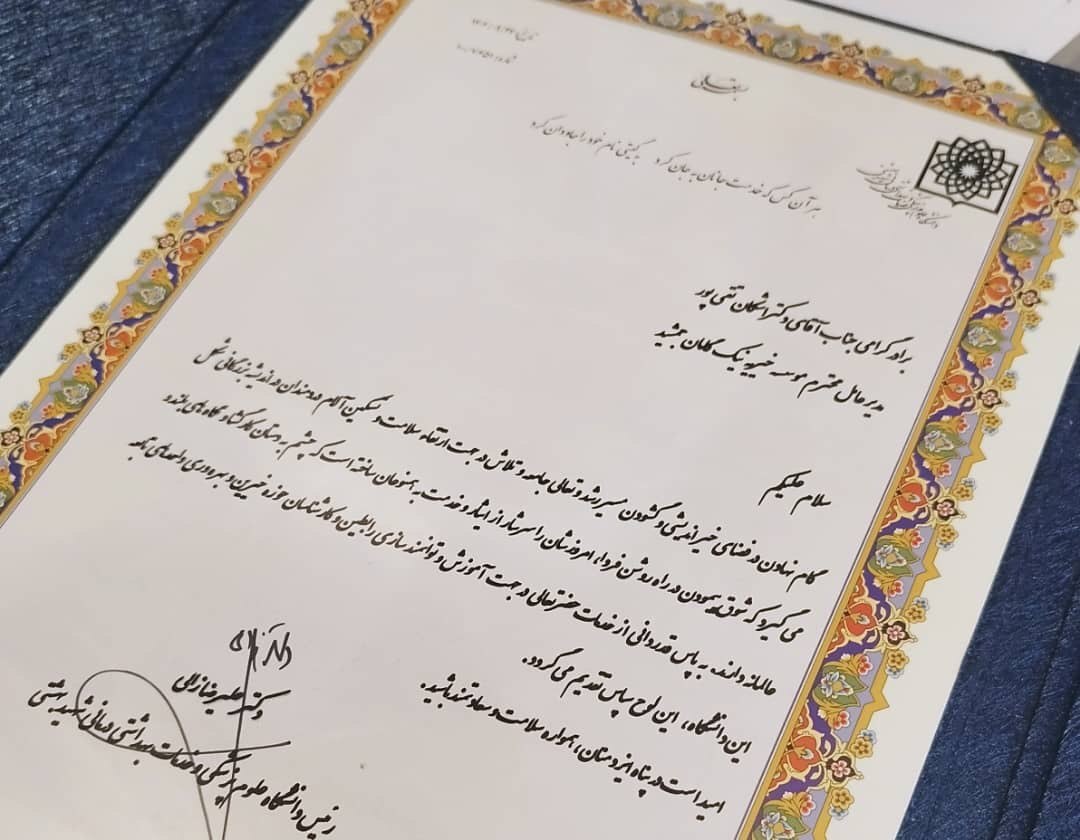 بسمه تعالی
هر آن کس که خدمت جانان به جان کرد به گیتی نام خود را جاودان کرد
برادر گرامی جناب آقای دکتر اشکان تقی پور
مدیرعامل محترم موسسه خیریه نیک گامان جمشید
سلام علیکم
گام نهادن در فضای خیراندیشی و گشودن مسیر رشد و تعالی جامعه و تلاش در جهت ارتقاء سلامت و تسکین آلام دردمندان در اندیشه بزرگانی شکل
می گیرد که شوق پیمودن در راه روشن فردا، امروزشان را سرشار از ایثار و خدمت به همنوعان ساخته است که چشم به دستان کارگشا و نگاه های بلند و
عالمانه دارند. به پاس قدردانی از خدمات حضرتعالی در جهت آموزش و توانمندسازی رابطین و کارشناسان حوزه خیرین و بهره وری واحدهای تابعه
این دانشگاه، این لوح سپاس تقدیم می گردد.
امید است در پناه ایزد منان، همواره سلامت و سعادتمند باشید.
دکتر علیرضا زالی
رئیس دانشگاه علوم پزشکی و خدمات بهداشتی درمانی شهید بهشتی